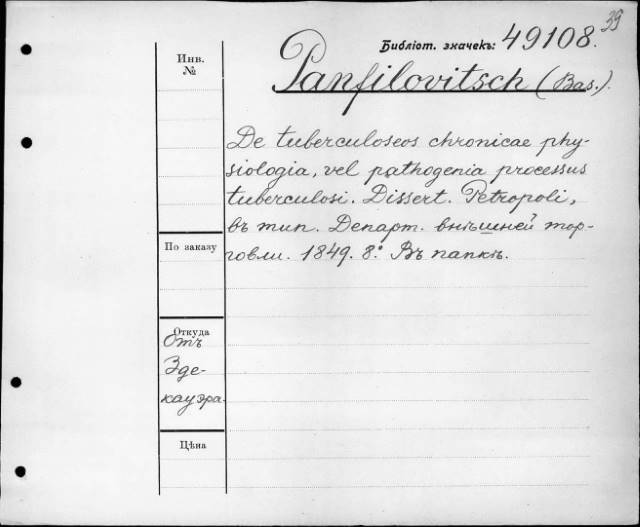 39
Библіот. значекъ: 49108.
Инв.
№
Panfilovitsch (Bas.).
De tuberculoseos chronicae phy-
siologia, vel pathogenia processus
tuberculosi. Dissert. Petropoli,
въ тип. Департ. внѣшней тор-
говли. 1849. 8º. Въ папкѣ.
По заказу
Откуда
Отъ
Зде-
кауэра.
Цѣна